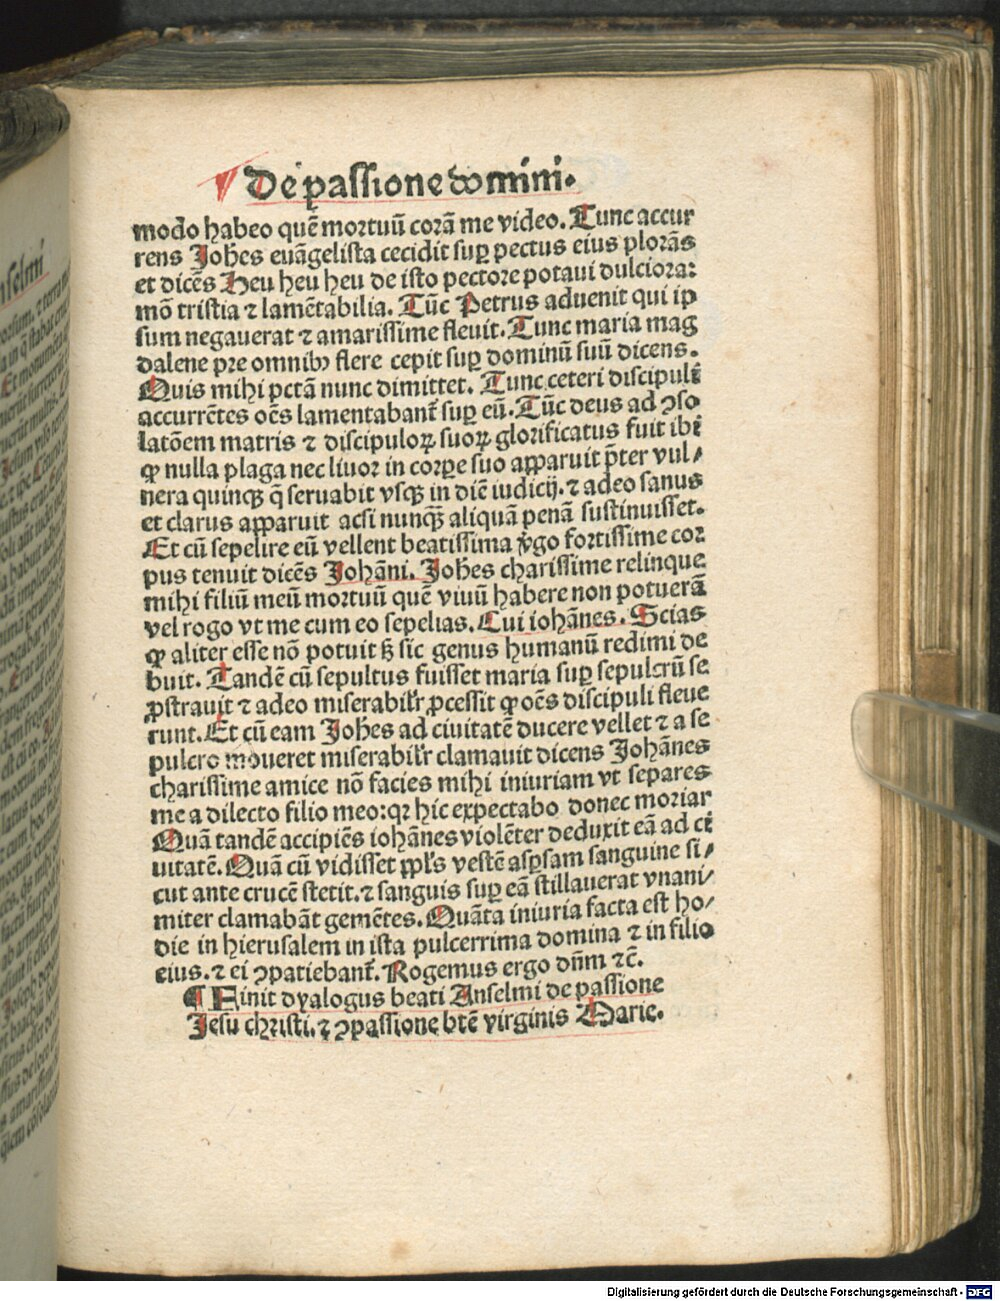 De passione domini.
modo habeo quē mortuū corā me video. Tunc accur
rens Johēs euāgelista cecidit suꝑ pectus eius plorās
et dicēs Heu heu heu de isto pectore potaui dulciora:
mō tristia ⁊ lamētabilia. Tūc Petrus aduenit qui ip
sum negauerat ⁊ amarissime fleuit. Tunc maria mag
dalene pre omnibꝰ flere cepit suꝑ dominū suū dicens.
Quis mihi pctā nunc dimittet. Tunc ceteri discipuli
accurrētes oēs lamentabant̄ suꝑ eū. Tūc deus ad ꝯso
latōem matris ⁊ discipuloꝝ suoꝝ glorificatus fuit ibi
ꝙ nulla plaga nec liuor in corꝑe suo aꝑparuit p̄ter vul/
nera quinqꝫ q̄ seruabit vsqꝫ in diē iudicij. ⁊ adeo sanus
et clarus apparuit acsi nunqꝫ̄ aliquā penā sustinuisset.
Et cū sepelire eū vellent beatissima v̄go fortissime cor
pus tenuit dicēs Johāni. Johēs charissime relinque
mihi filiū meū mortuū quē viuū habere non potuerā
vel rogo vt me cum eo sepelias. Cui iohānes. Scias
ꝙ aliter esse nō potuit sꝫ sic genus humanū redimi de
buit. Tandē cū sepultus fuisset maria suꝑ sepulcrū se
ꝓstrauit ⁊ adeo miserabilr̄ ꝓcessit ꝙ oēs discipuli fleue
runt. Et cū eam Johēs ad ciuitatē ducere vellet ⁊ a se
pulcro moueret miserabilr̄ clamauit dicens Johānes
charissime amice nō facies mihi iniuriam vt separes
me a dilecto filio meo: qꝛ hic expectabo donec moriar
Quā tandē accipiēs iohānes violēter deduxit eā ad ci
uitatē. Quā cū vidisset ppl̄s vestē aspsam sanguine si/
cut ante crucē stetit. ⁊ sanguis suꝑ eā stillauerat vnani/
miter clamabāt gemētes. Quāta iniuria facta est ho/
die in hierusalem in ista pulcerrima domina ⁊ in filio
eius. ⁊ ei ꝯpatiebant̄. Rogemus ergo dn̄m ⁊c̄.
¶ Finit dyalogus beati Anselmi de passione
Jesu christi. ⁊ ꝯpassione btē virginis Marie.
Digitalisierung gefördert durch die Deutsche Forschungsgemeinschaft - DFG